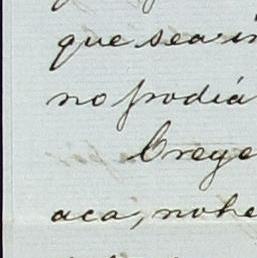 que sea in
no podia
Creye
aca, no he